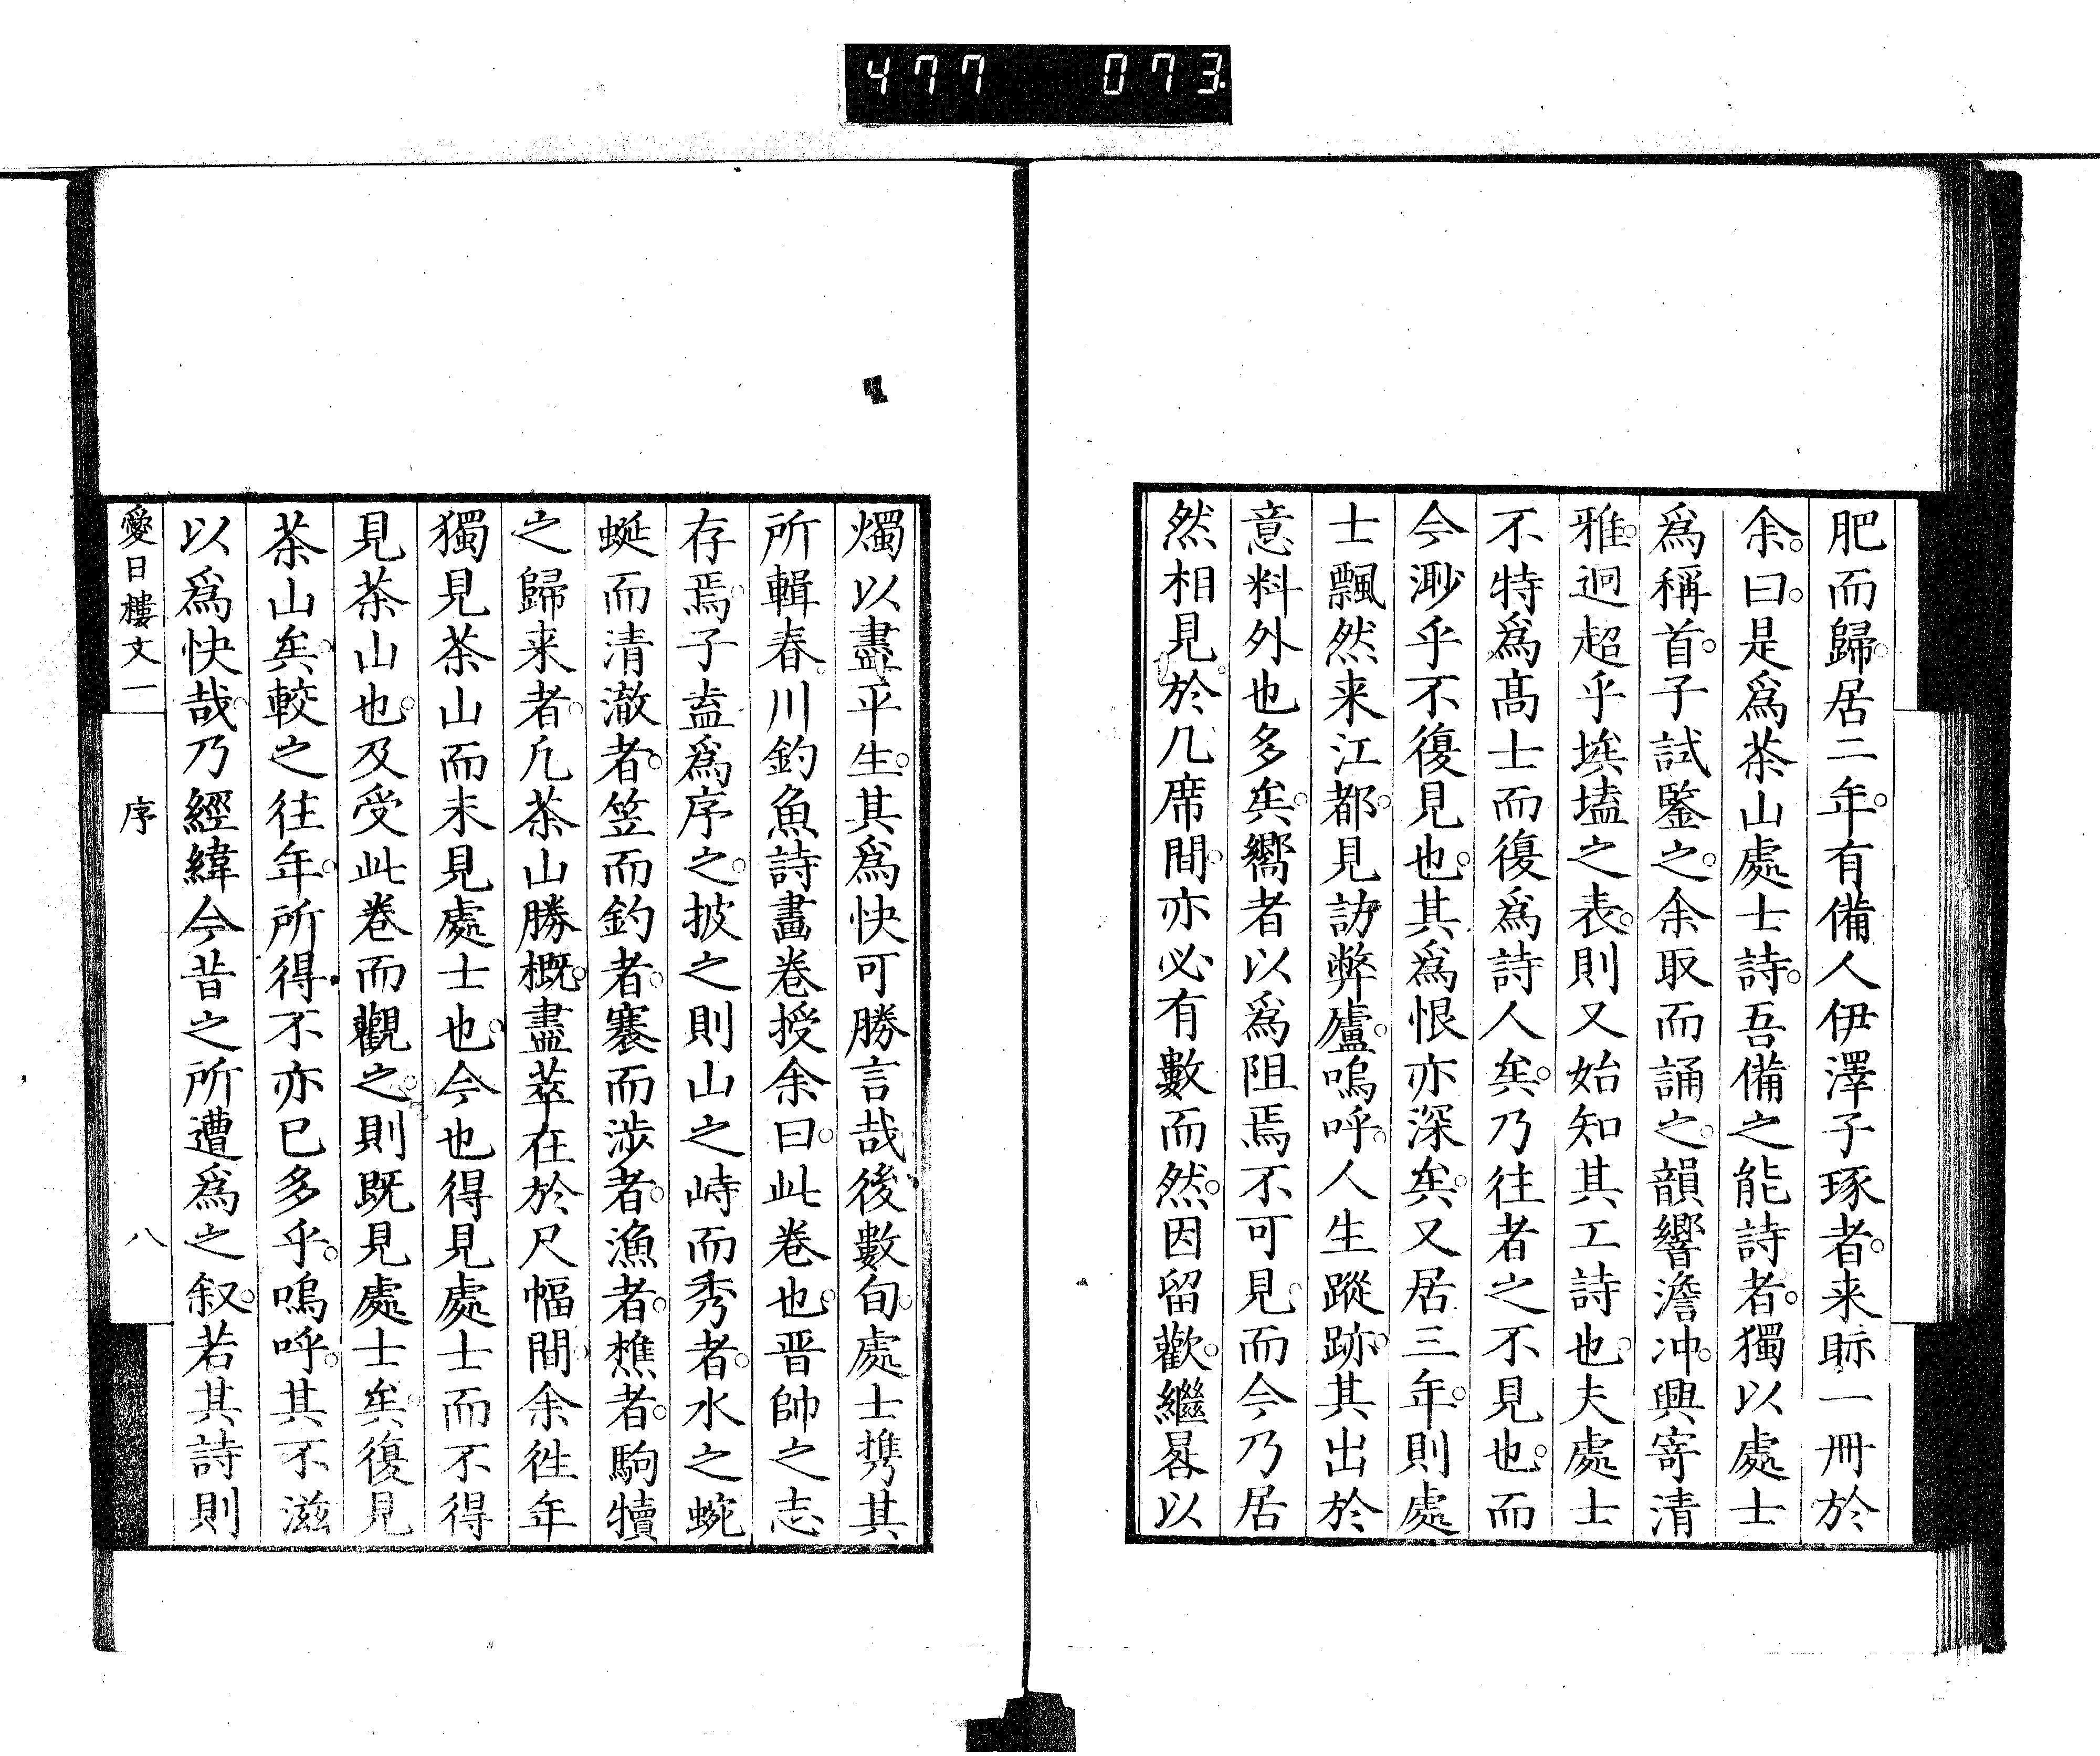 477 073
肥而歸。居二年。有備人伊澤子琢者。来眎一冊於
余。曰。是爲茶山處士詩。吾備之能詩者。獨以處士
爲稱首。子試鍳之。余取而誦之。韻響澹冲。興寄清
雅。迥超乎埃壒之表。則又始知其工詩也。夫處士
不特爲髙士而復爲詩人矣。乃往者之不見也。而
今渺乎不復見也。其爲恨亦深矣。又居三年。則處
士飄然来江都。見訪弊廬。嗚呼。人生蹤跡。其出於
意料外也多矣。嚮者以爲阻焉不可見。而今乃居
然相見於几席間。亦必有數而然。因留歡。繼晷以
燭以盡平生。其爲快可勝言哉。後數旬。處士携其
所輯春川釣魚詩畫卷授余曰。此卷也。晋帥之志
存焉。子盍爲序之。披之則山之峙而秀者。水之蜿
蜒而清澈者。笠而釣者。褰而涉者。漁者。樵者。駒犢
之歸来者。凢茶山勝概。盡萃在於尺幅間。余徃年
獨見茶山而未見處士也。今也得見處士而不得
見茶山也。及受此卷而觀之。則既見處士矣。復見
茶山矣。較之往年。所得不亦已多乎。嗚呼。其不滋
以爲快哉。乃經緯今昔之所遭爲之叙。若其詩則
愛日樓文一 序 八